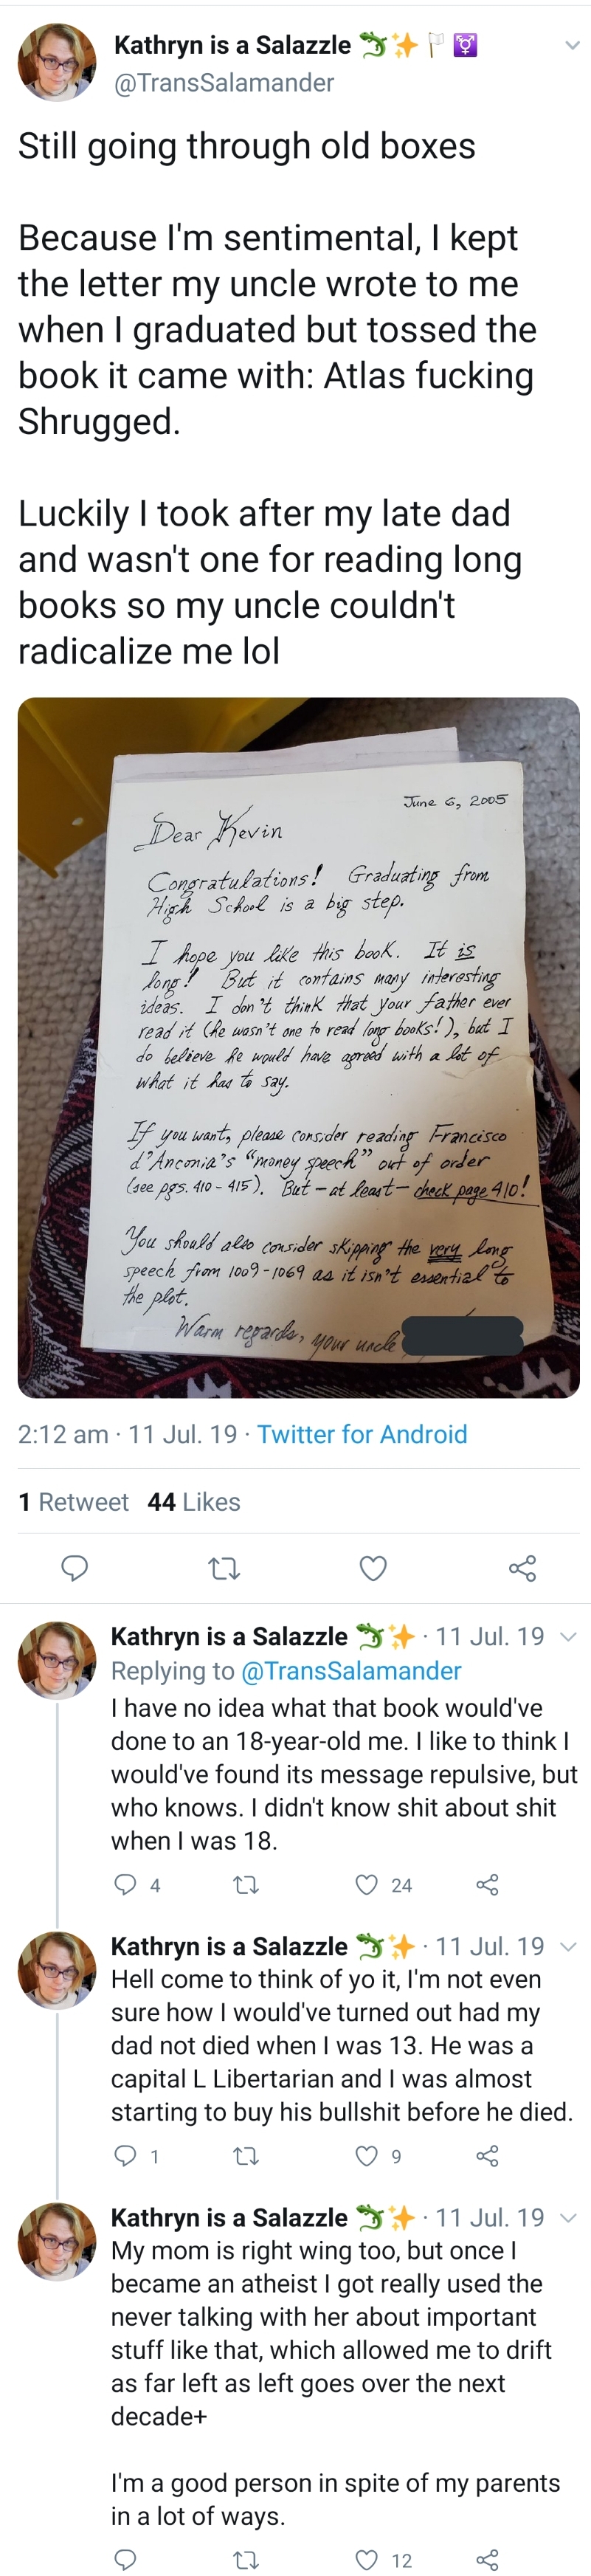 Kathryn is a Salazzle 🦎✨🏳️⚧
@TransSalamander
Still going through old boxes
Because I'm sentimental, I kept
the letter my uncle wrote to me
when I graduated but tossed the
book it came with: Atlas fucking
Shrugged.
Luckily I took after my late dad
and wasn't one for reading long
books so my uncle couldn't
radicalize me lol
June 6, 2005
Dear Kevin
Congratulations! Graduating from
High School is a big step.
I hope you like this book. It is
long! But it contains many interesting
ideas. I don't think that your father ever
read it (he wasn't one to read long books!), but I
do believe he would have agreed with a lot of
what it has to say.
If you want, please consider reading Francisco
d'Anconia's "money speech" out of order
(see pgs. 410 - 415). But - at least - check page 410!
You should also consider skipping the very long
speech from 1009-1069 as it isn't essential to
the plot.
Warm regards, your uncle
2:12 am · 11 Jul. 19 · Twitter for Android
1 Retweet 44 Likes
Kathryn is a Salazzle 🦎✨ · 11 Jul. 19
Replying to @TransSalamander
I have no idea what that book would've
done to an 18-year-old me. I like to think I
would've found its message repulsive, but
who knows. I didn't know shit about shit
when I was 18.
4 24
Kathryn is a Salazzle 🦎✨ · 11 Jul. 19
Hell come to think of yo it, I'm not even
sure how I would've turned out had my
dad not died when I was 13. He was a
capital L Libertarian and I was almost
starting to buy his bullshit before he died.
1 9
Kathryn is a Salazzle 🦎✨ · 11 Jul. 19
My mom is right wing too, but once I
became an atheist I got really used the
never talking with her about important
stuff like that, which allowed me to drift
as far left as left goes over the next
decade+
I'm a good person in spite of my parents
in a lot of ways.
12